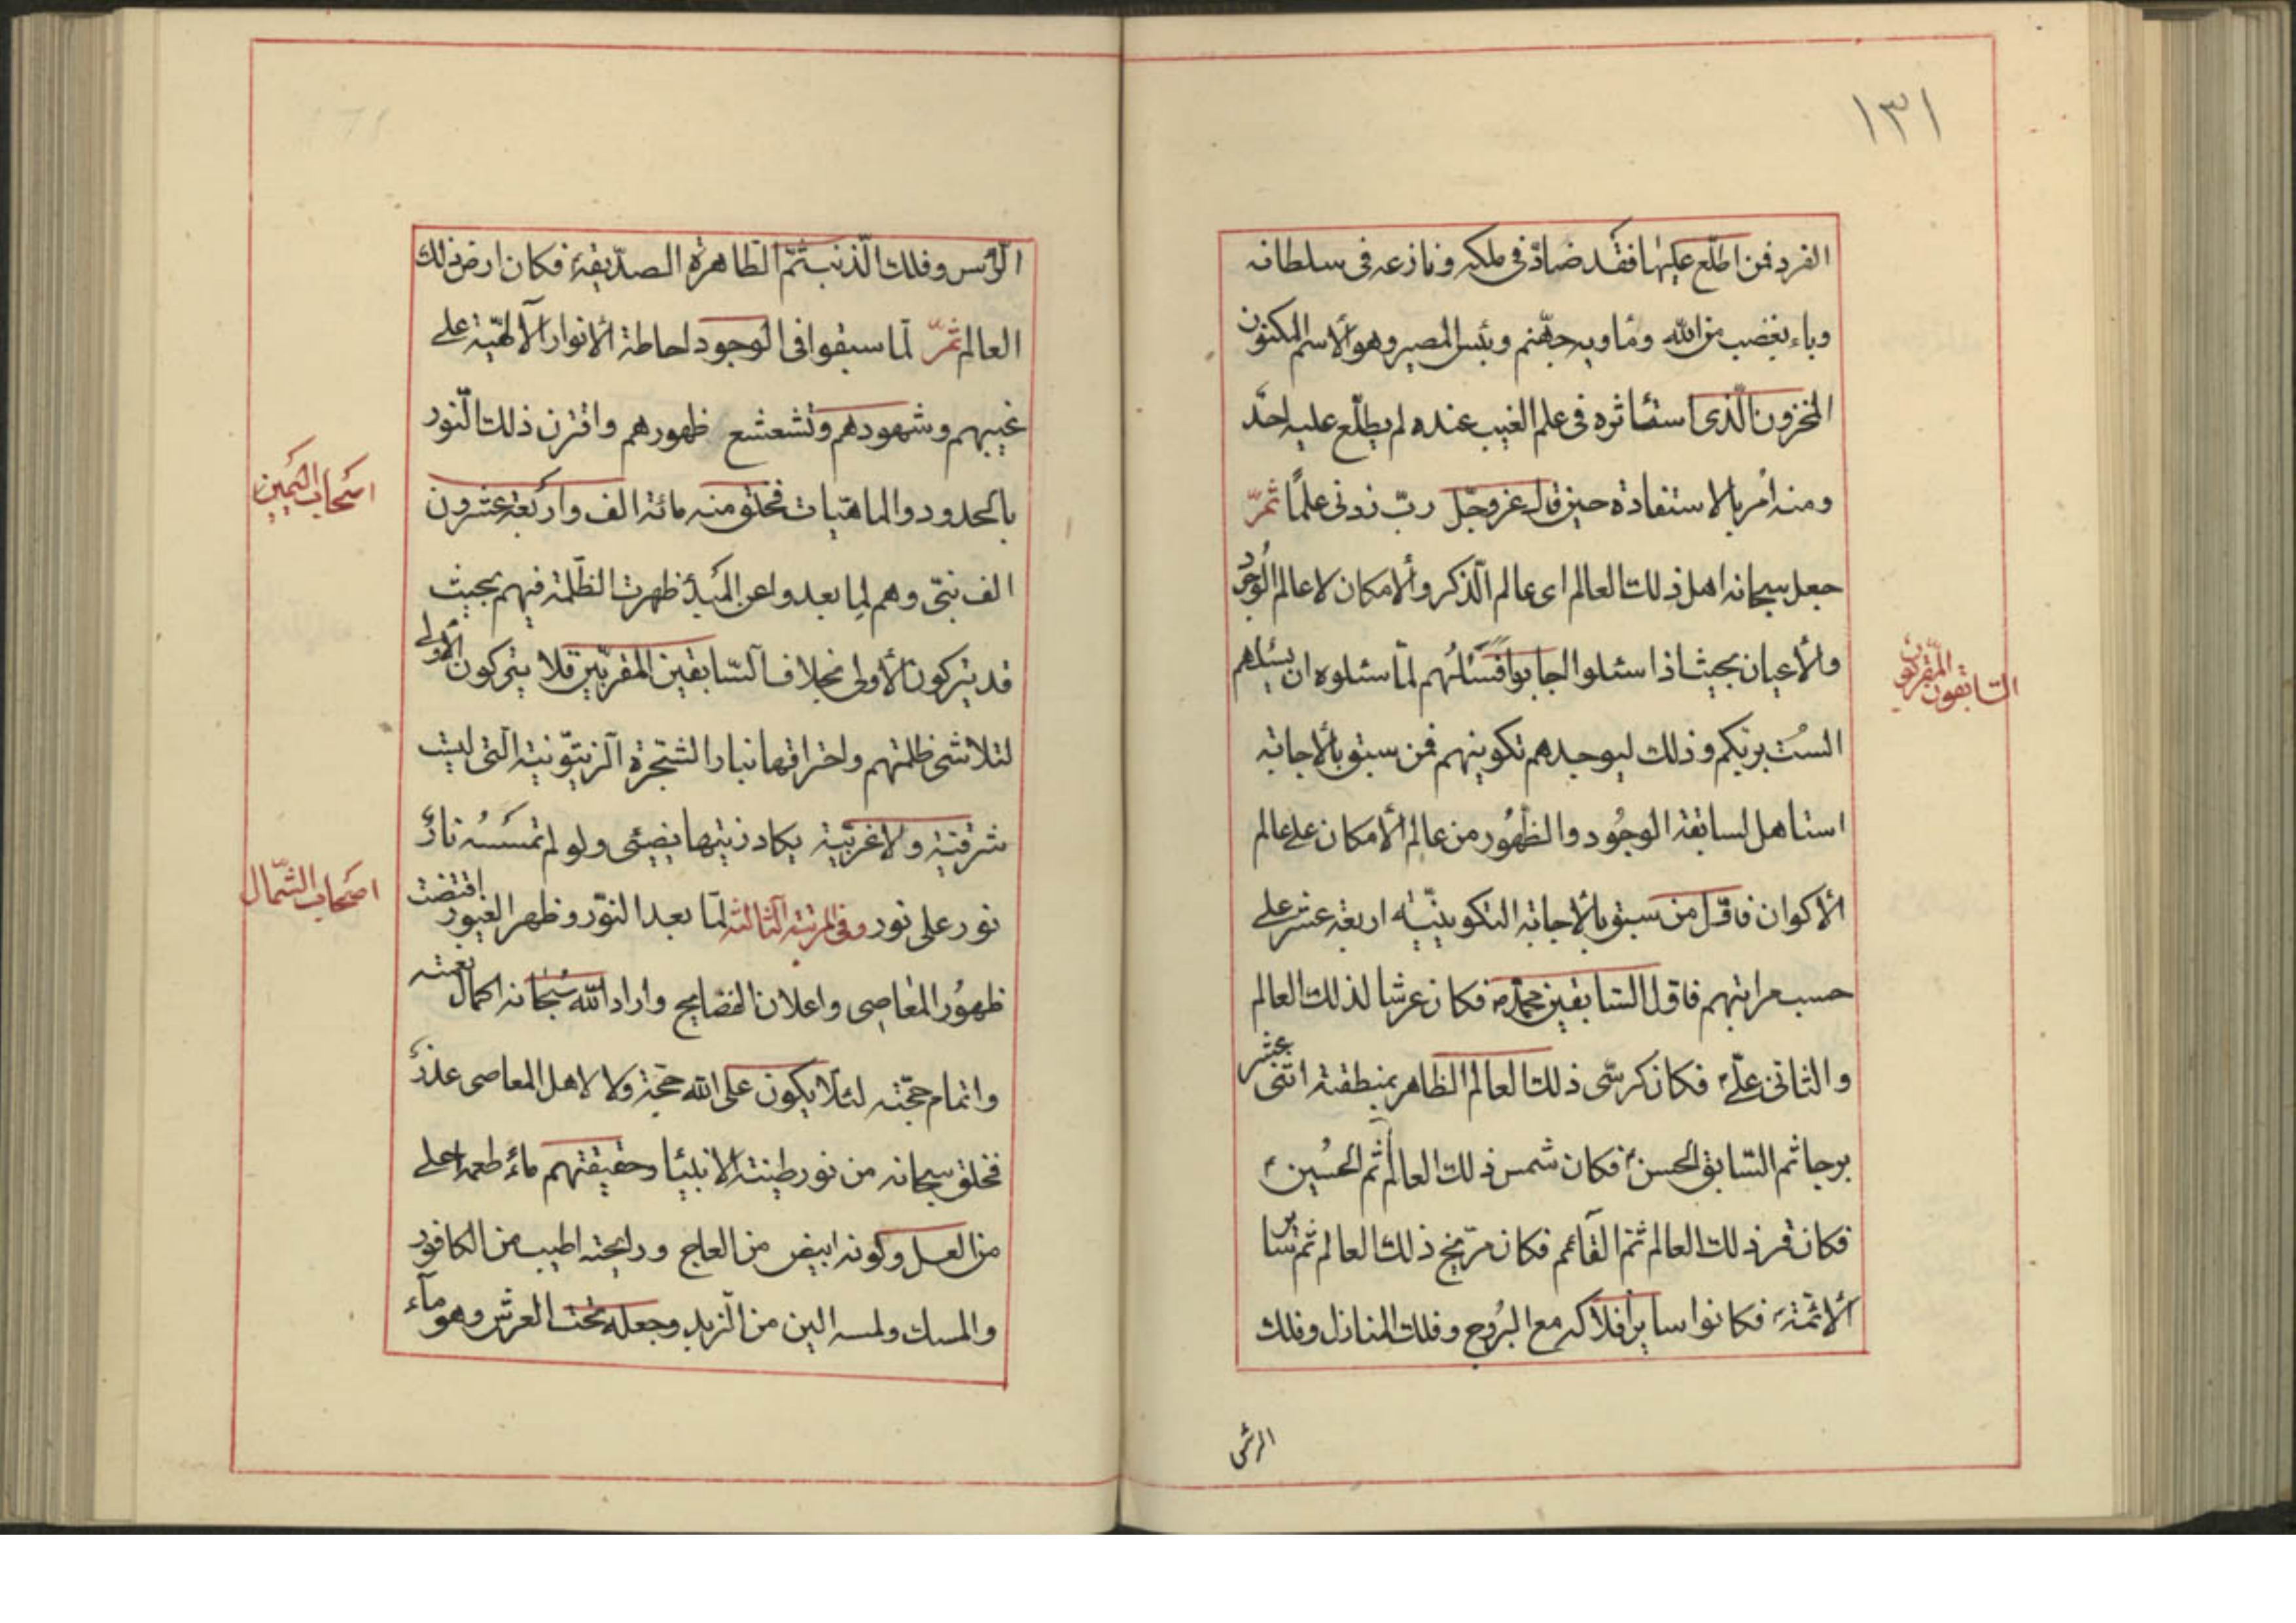 ١٣١
الفرد فمن اطلع عليها فقد ضادّ في ملكه ونازعه في سلطانه
وباء بغضب من الله ومأويه جهنّم وبئس المصير وهو الاسم المكنون
المخزون الّذي استأثره في علم الغيب عنده لم يطّلع عليه احد
ومنه أمر بالاستفادة حين قال عزوجل ربّ زدني علمًا ثمّ
جعل سبحانه اهل ذلك العالم اي عالم الذكر والامكان لا عالم الوجود
والأعيان بحيث اذا سئلوا اجابوا فسألهم لمّا سئلوه ان يسئلهم
الست بربكم وذلك ليوجدهم تكوينهم فمن سبق بالاجابة
استاهل لسابقة الوجود والظهور من عالم الامكان على عالم
الاكوان فاوّل من سبق بالاجابة التكوينيّة اربعة عشر على
حسب مراتبهم فاوّل السّابقين محمّد ص فكان عرشا لذلك العالم
والثاني عليّ ع فكان كرسّي ذلك العالم الظاهر بمنطقة اثنى عشر
برجا ثم السّابق الحسن ع فكان شمس ذلك العالم ثم الحسين ع
فكان قمر ذلك العالم ثمّ القائم فكان مرّيخ ذلك العالم ثم سائر
الائمّة ع فكانوا ساير افلاكه مع البروج وفلك المنازل وفلك
السّابقون المقرّبون
الرأس وفلك الذنب ثمّ الطاهرة الصدّيقة فكان ارض ذلك
العالم ثمّ لما سبقوا في الوجود احاطة الانوار الالهيّة على
غيبهم وشهودهم وتشعشع ظهورهم واقترن ذلك النّور
بالحدود والماهيّات فخلق منه مائة الف واربعة عشرون
الف نبيّ وهم لما بعدوا عن المبدأ ظهرت الظلمة فيهم بحيث
قد يتركون الأولى بخلاف السّابقين المقرّبين فلا يتركون الأولى
لتلاشي ظلمتهم واحتراقها بنار الشّجرة الزيتونية الّتي ليست
شرقيّة ولا غربيّة يكاد زيتها يضيئ ولو لم تمسسه نار
نور على نور وفي المرتبة الثالثة لمّا بعد النّور وظهر الغيور اقتضت
ظهور المعاصي واعلان الفضايح واراد الله سبحانه اكمال نعمته
واتمام حجّته لئلّا يكون على الله حجّة ولا لاهل المعاصي عذر
فخلق سبحانه من نور طينة الانبياء وحقيقتهم ماءً طعمه احلى
من العسل وكونه ابيض من العاج ورايحته اطيب من الكافور
والمسك ولمسه الين من الزبد وجعله تحت العرش وهو ماء
اصحاب اليمين
اصحاب الشّمال